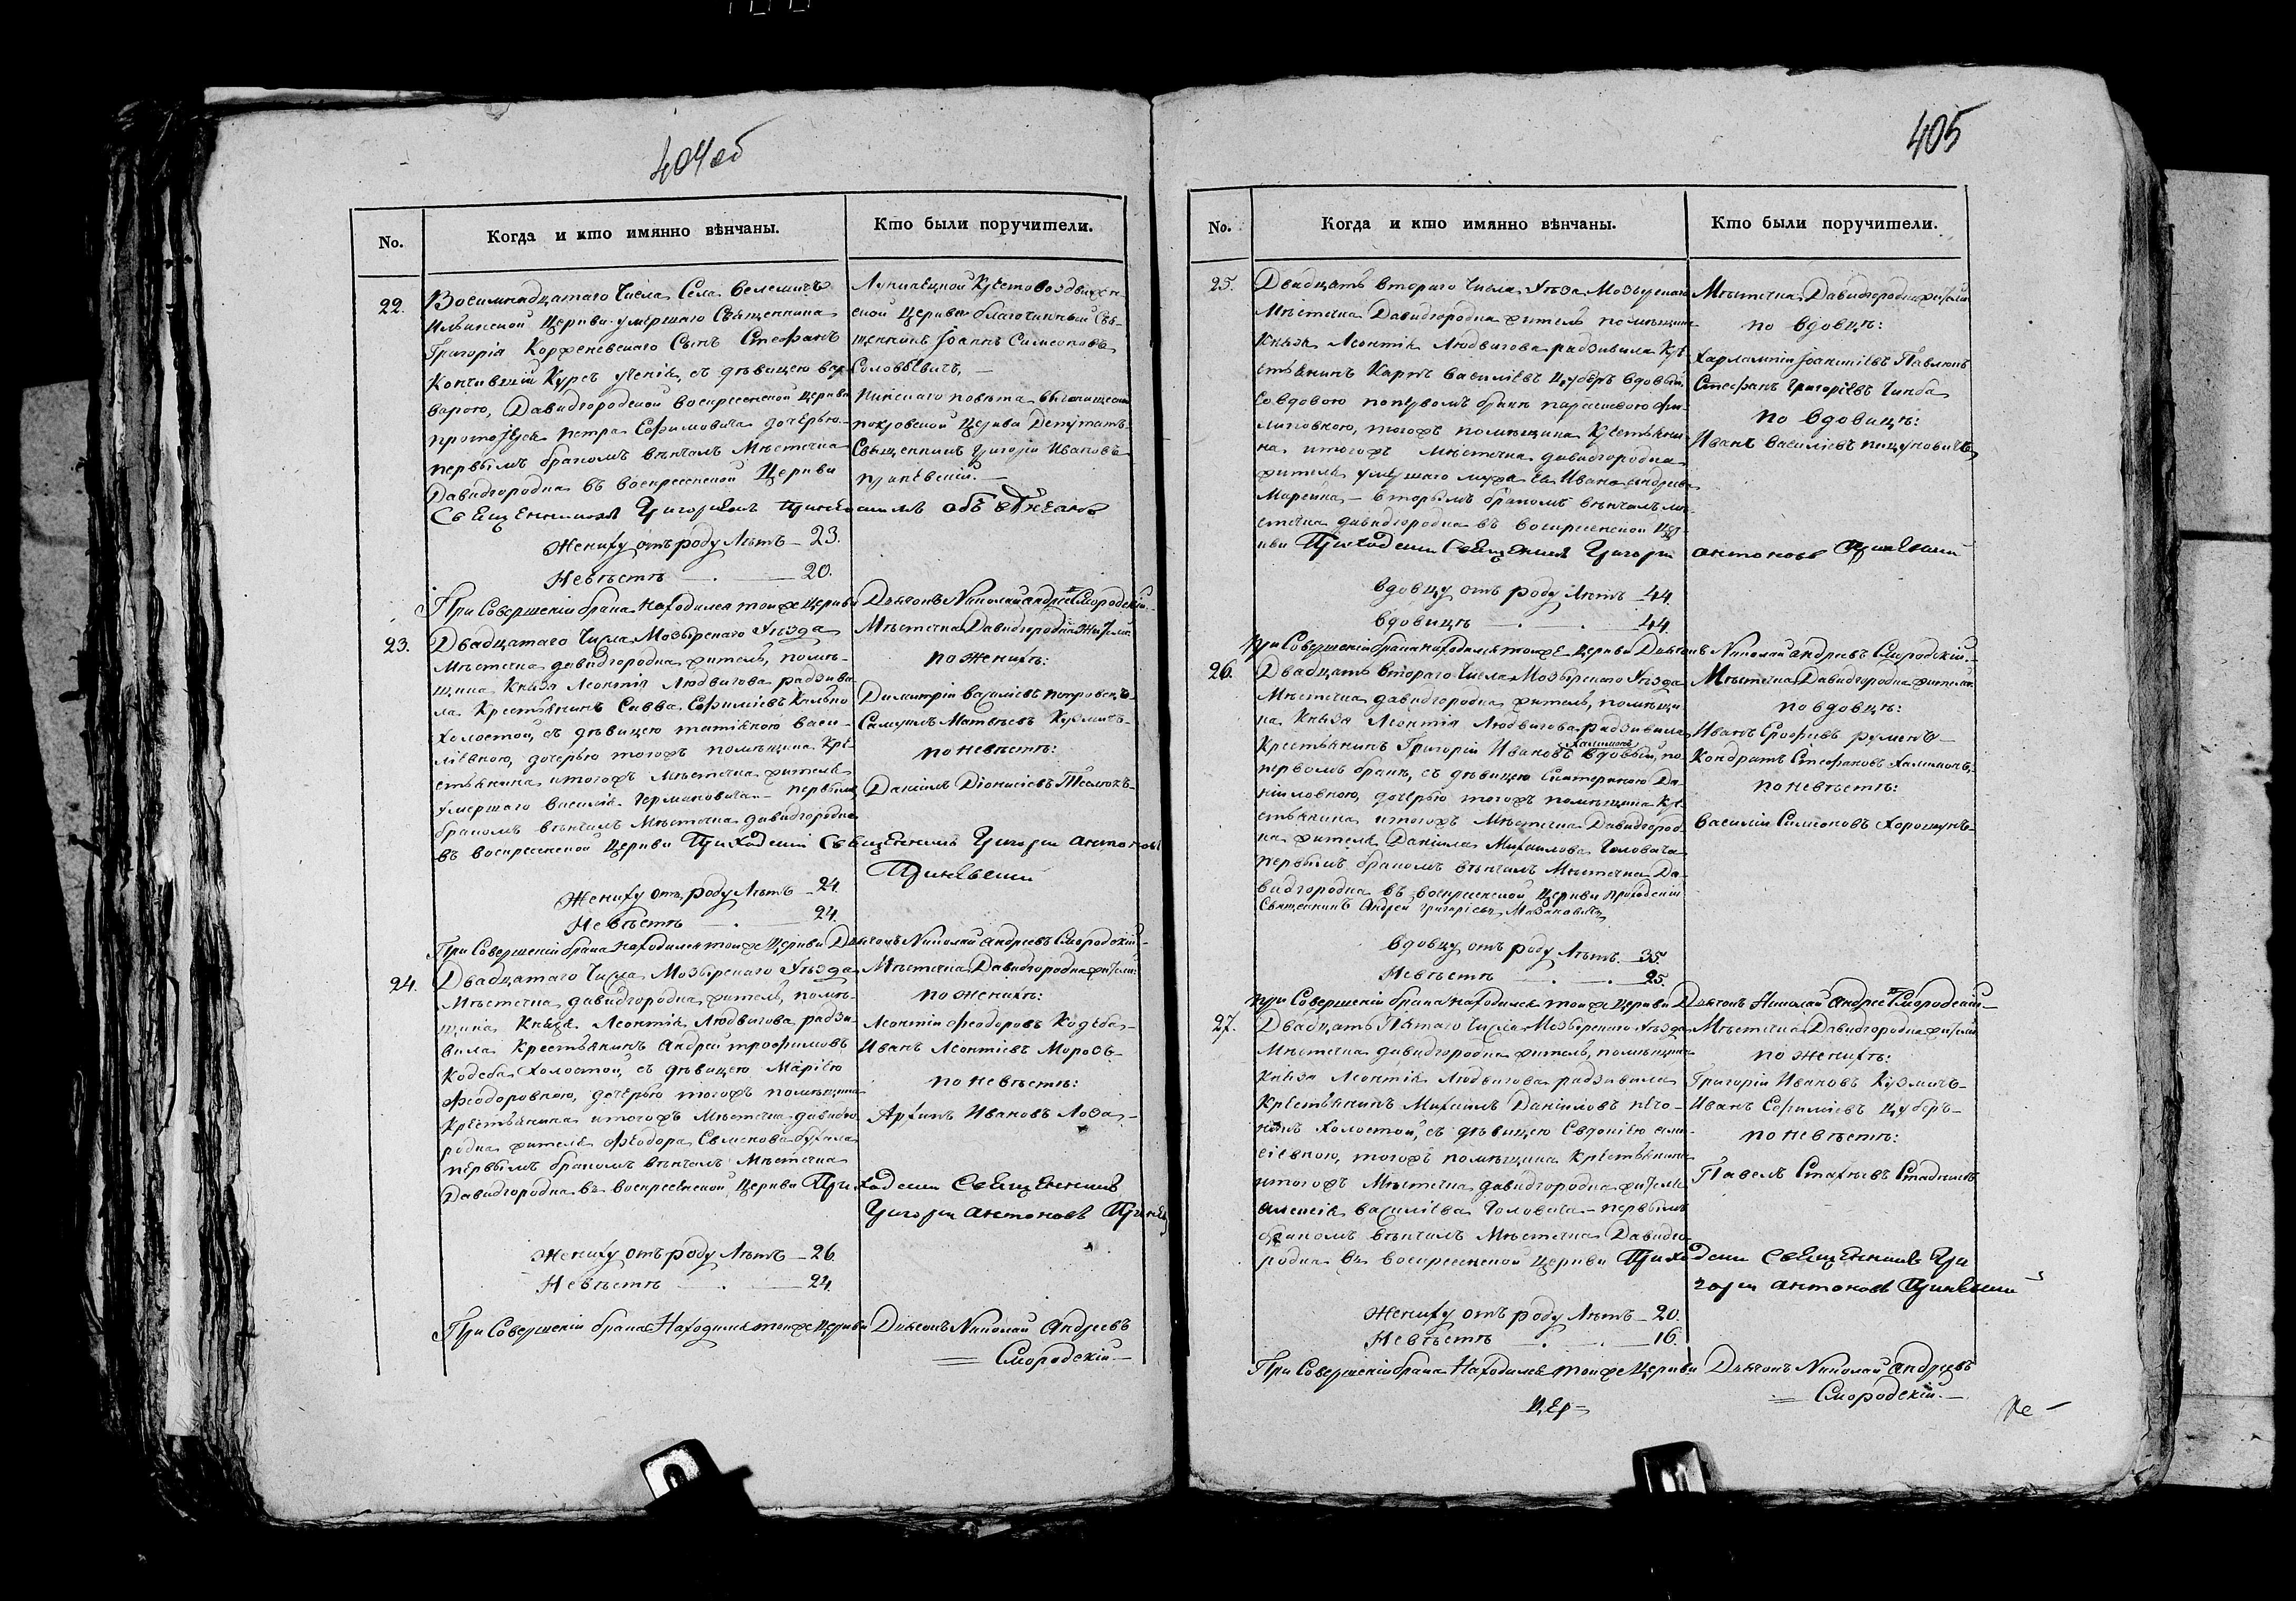 404 об
No.
Когда и кто имянно вѣнчаны.
Кто были поручители.
22.
Восимнадцатаго Числа Села Велемичъ
Ильинской Церкви умершаго Священника
Григорія Сынъ Стефанъ
Кончившій Курсъ ученія, съ дѣвицею Вар-
варою, Давидгородской Воскресенской Церкви
Петра Дочерью
первымъ бракомъ вѣнчалъ Мѣстечка
Давидгородка въ Воскресенской Церкви
Священникъ Григорій
Жениху отъ роду Лѣтъ — 23.
Невѣстѣ — 20.
Крестовоздвижен-
ской Церкви благочинный Свя-
щенникъ Іоаннъ Симеоновъ
Соловьевичъ,
Пинскаго повѣта
покровской Церкви Депутатъ
Священникъ Григорій Ивановъ
При Совершеніи брака находился тойже Церкви Дьячокъ Николай Андреевъ Смородскій.
23.
Двадцатаго Числа Мозырскаго Уѣзда
Мѣстечка Давидгородка житель, помѣ-
щика Князя Леонтія Людвигова радзиви-
ла Крестьянинъ Савва
Холостой, съ дѣвицею татіяною Васи-
ліевною, дочерью тогожъ помѣщика Кре-
стьянина итогожъ Мѣстечка жителя
умершаго Василія Германовича первымъ
бракомъ вѣнчалъ Мѣстечка Давидгородка
въ Воскресенской Церкви Приходскій Священникъ Григорій Антоновъ
Жениху отъ роду Лѣтъ — 24.
Невѣстѣ — 24.
Мѣстечка Давидгородка Жители
по Женихѣ:
Димитрій Василіевъ
Самуилъ Матвѣевъ Кузмичъ
по невѣстѣ:
Даніилъ Діонисіевъ
При Совершеніи брака находился тойже Церкви Дьячокъ Николай Андреевъ Смородскій
24.
Двадцатаго Числа Мозырскаго Уѣзда
Мѣстечка Давидгородка житель, помѣ-
щика Князя Леонтія Людвигова радзи-
вила Крестьянинъ Андрей трофимовъ
Кодеба Холостой, съ дѣвицею Маріею
Феодоровною, дочерью тогожъ помѣщика
Крестьянина итогожъ Мѣстечка Давидго-
родка жителя Феодора
первымъ бракомъ вѣнчалъ Мѣстечка
Давидгородка въ Воскресенской Церкви Приходскій Священникъ
Григорій Антоновъ
Жениху отъ роду Лѣтъ — 26.
Невѣстѣ — 24.
Мѣстечка Давидгородка жители
по Женихѣ:
Леонтій Феодоровъ Кодеба
Иванъ Леонтіевъ Морозъ
по невѣстѣ:
Архипъ Ивановъ Лоза
При Совершеніи брака Находился тойже Церкви Дьячокъ Николай Андреевъ
Смородскій
405
No.
Когда и кто имянно вѣнчаны.
Кто были поручители.
25.
Двадцать втораго Числа Уѣзда Мозырскаго
Мѣстечка Давидгородка житель помѣщика
Князя Леонтія Людвигова радзивила Кре-
стьянинъ Карпъ Василіевъ Цуберъ вдовый,
со вдовою по первомъ бракѣ Фи-
липовною, тогожъ помѣщика Крестьяни-
на итогожъ Мѣстечка Давидгородка
жителя умершаго мужа ея Ивана Андреева
вторымъ бракомъ вѣнчалъ Мѣ-
стечка Давидгородка въ Воскресенской Цер-
кви Приходскій Священникъ Григорій Антоновъ
Вдовцу отъ роду Лѣтъ — 44.
Вдовицѣ — 44.
Мѣстечка Давидгородка жители
по Вдовцѣ:
Харлампій Іоанніевъ Павлюкъ
Стефанъ Григоріевъ
по Вдовицѣ:
Иванъ Василіевъ
При Совершеніи брака находился тойже Церкви Дьячокъ Николай Андреевъ Смородскій
26.
Двадцать втораго Числа Мозырскаго Уѣзда
Мѣстечка Давидгородка житель, помѣщи-
ка Князя Леонтія Людвигова радзивила
Крестьянинъ Григорій Ивановъ Вдовый, по
первомъ бракѣ, съ дѣвицею Екатериною Да-
ніиловною, дочерью тогожъ помѣщика Кре-
стьянина итогожъ Мѣстечка Давидгород-
ка жителя Даніила Михайлова Головача
первымъ бракомъ вѣнчалъ Мѣстечка Да-
видгородка въ Воскресенской Церкви приходскій
Священникъ Андрей Григоріевъ
Вдовцу отъ роду Лѣтъ — 35.
Невѣстѣ — 25.
Мѣстечка Давидгородка жители
по вдовцѣ:
Иванъ Ерофѣевъ
Кондратъ Стефановъ
по невѣстѣ:
Василій Симеоновъ Хорошунъ
При Совершеніи брака находился тойже Церкви Дьячокъ Николай Андреевъ Смородскій
27.
Двадцать Пятаго Числа Мозырскаго Уѣзда
Мѣстечка Давидгородка житель, помѣщика
Князя Леонтія Людвигова радзивила
Крестьянинъ Михаилъ Даніиловъ
Холостой, съ дѣвицею Евдокіею
тогожъ помѣщика Крестьянина
итогожъ Мѣстечка Давидгородка жителя
Алексія Василіева Головача первымъ
бракомъ вѣнчалъ Мѣстечка Давидго-
родка въ Воскресенской Церкви Приходскій Священникъ Гри-
горій Антоновъ
Жениху отъ роду Лѣтъ — 20.
Невѣстѣ — 16.
Мѣстечка Давидгородка жители
по Женихѣ:
Григорій Ивановъ Кузмичъ
Иванъ Цуберъ
по невѣстѣ:
Павелъ
При Совершеніи брака Находился тойже Церкви Дьячокъ Николай Андреевъ
Смородскій